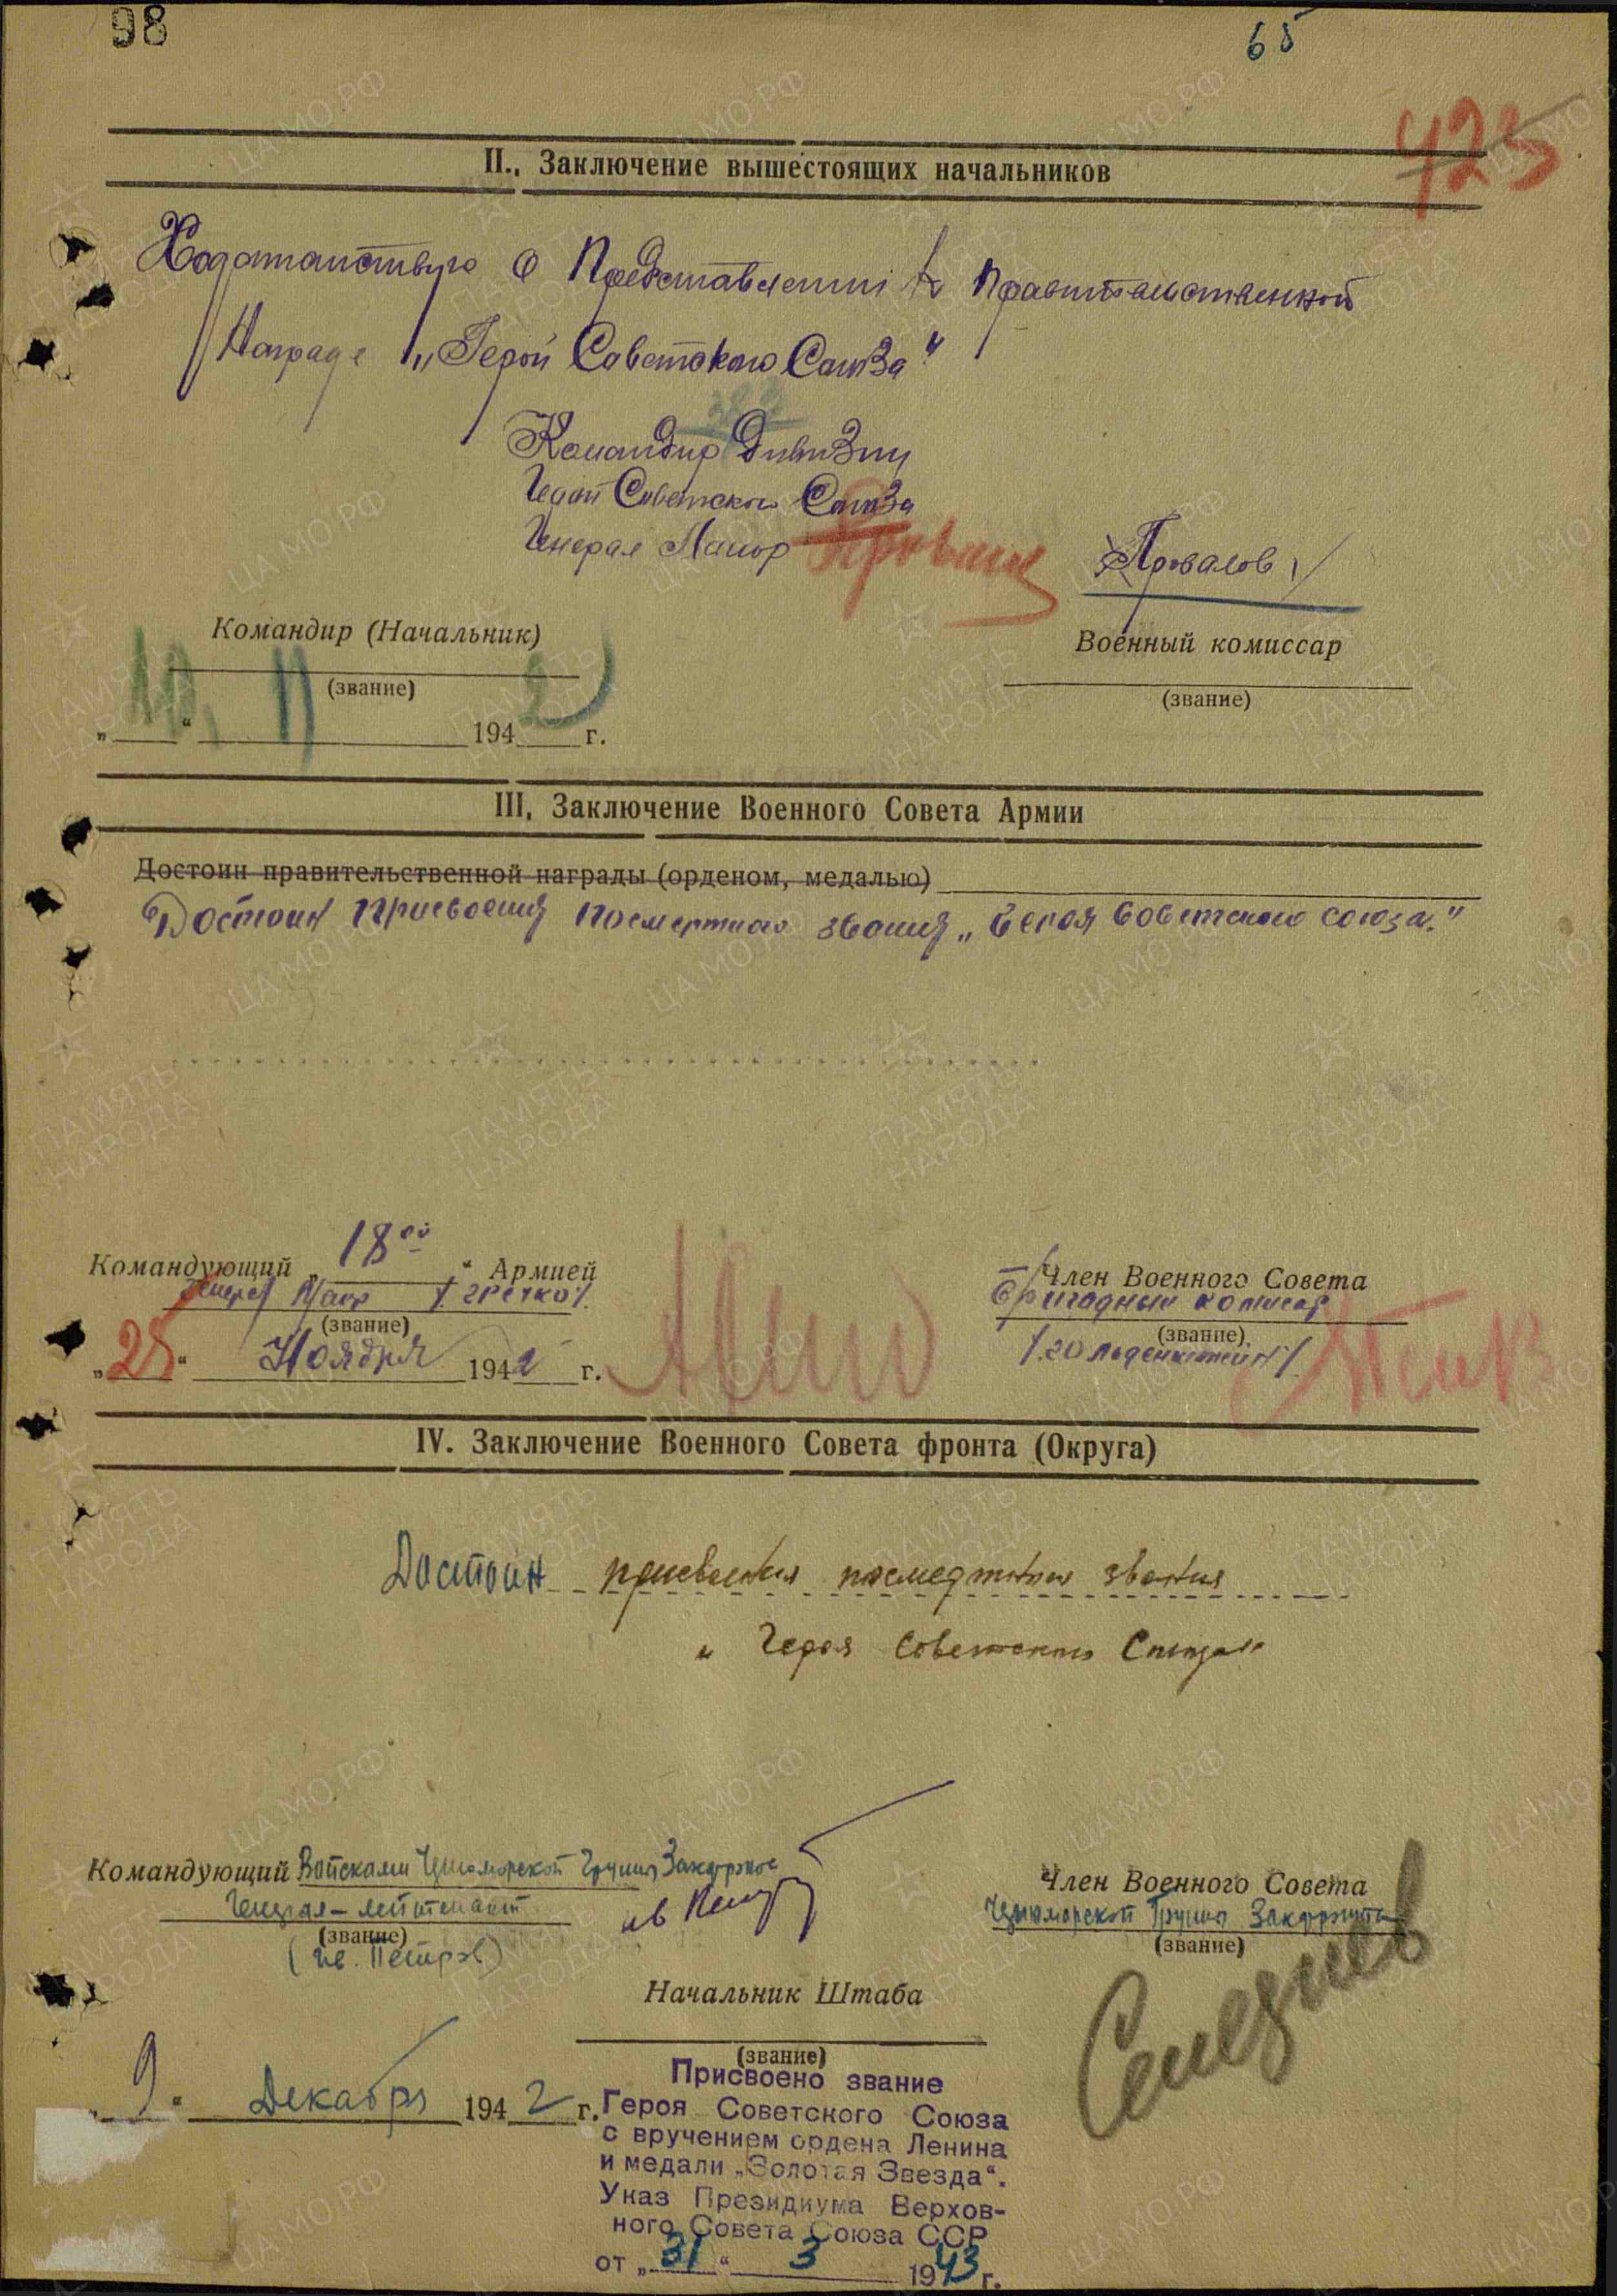 98
65
423
II., Заключение вышестоящих начальников
Ходатайствую о Представлении к Правительственной
Награде „Герой Советского Союза"
Командир Дивизии
Герой Советского Союза
Генерал Маиор
/Провалов/
Командир (Начальник)
Военный комиссар
(звание)
(звание)
„10." 11 1942 г.
III, Заключение Военного Совета Армии
Достоин правительственной награды (орденом, медалью)
Достоин присвоения посмертного звания „Героя Советского союза."
Командующий „18ой" Армией
Член Военного Совета
Генерал Маиор /Гречко/.
Бригадный комисар
(звание)
(звание)
„25" Ноября 1942 г.
IV. Заключение Военного Совета фронта (Округа)
Достоин присвоения посмертного звания
„Героя Советского Союза"
Командующий Войсками Черноморской Группы Закфронта
Член Военного Совета
Генерал-лейтенант
Черноморской Группы Закфронта
(звание)
(звание)
(Ив. Петров)
Ив Петров
Начальник Штаба
(звание)
„9" Декабря 1942 г.
Присвоено звание
Героя Советского Союза
с вручением ордена Ленина
и медали „Золотая Звезда".
Указ Президиума Верхов-
ного Совета Союза ССР
от „31" 3 1943 г.